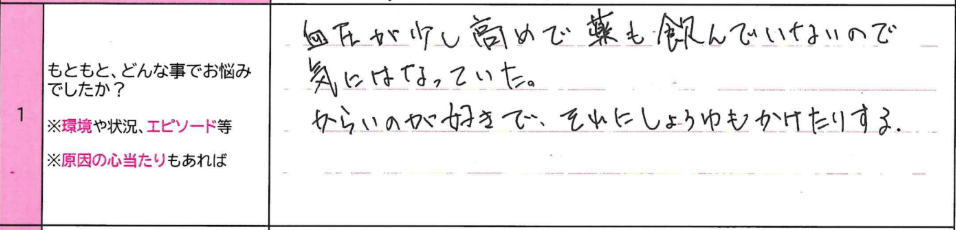 1
もともと、どんな事でお悩み
でしたか？
※環境や状況、エピソード等
※原因の心当たりもあれば
血圧が少し高めで薬も飲んでいないので
気にはなっていた。
からいのが好きで、それにしょうゆもかけたりする.